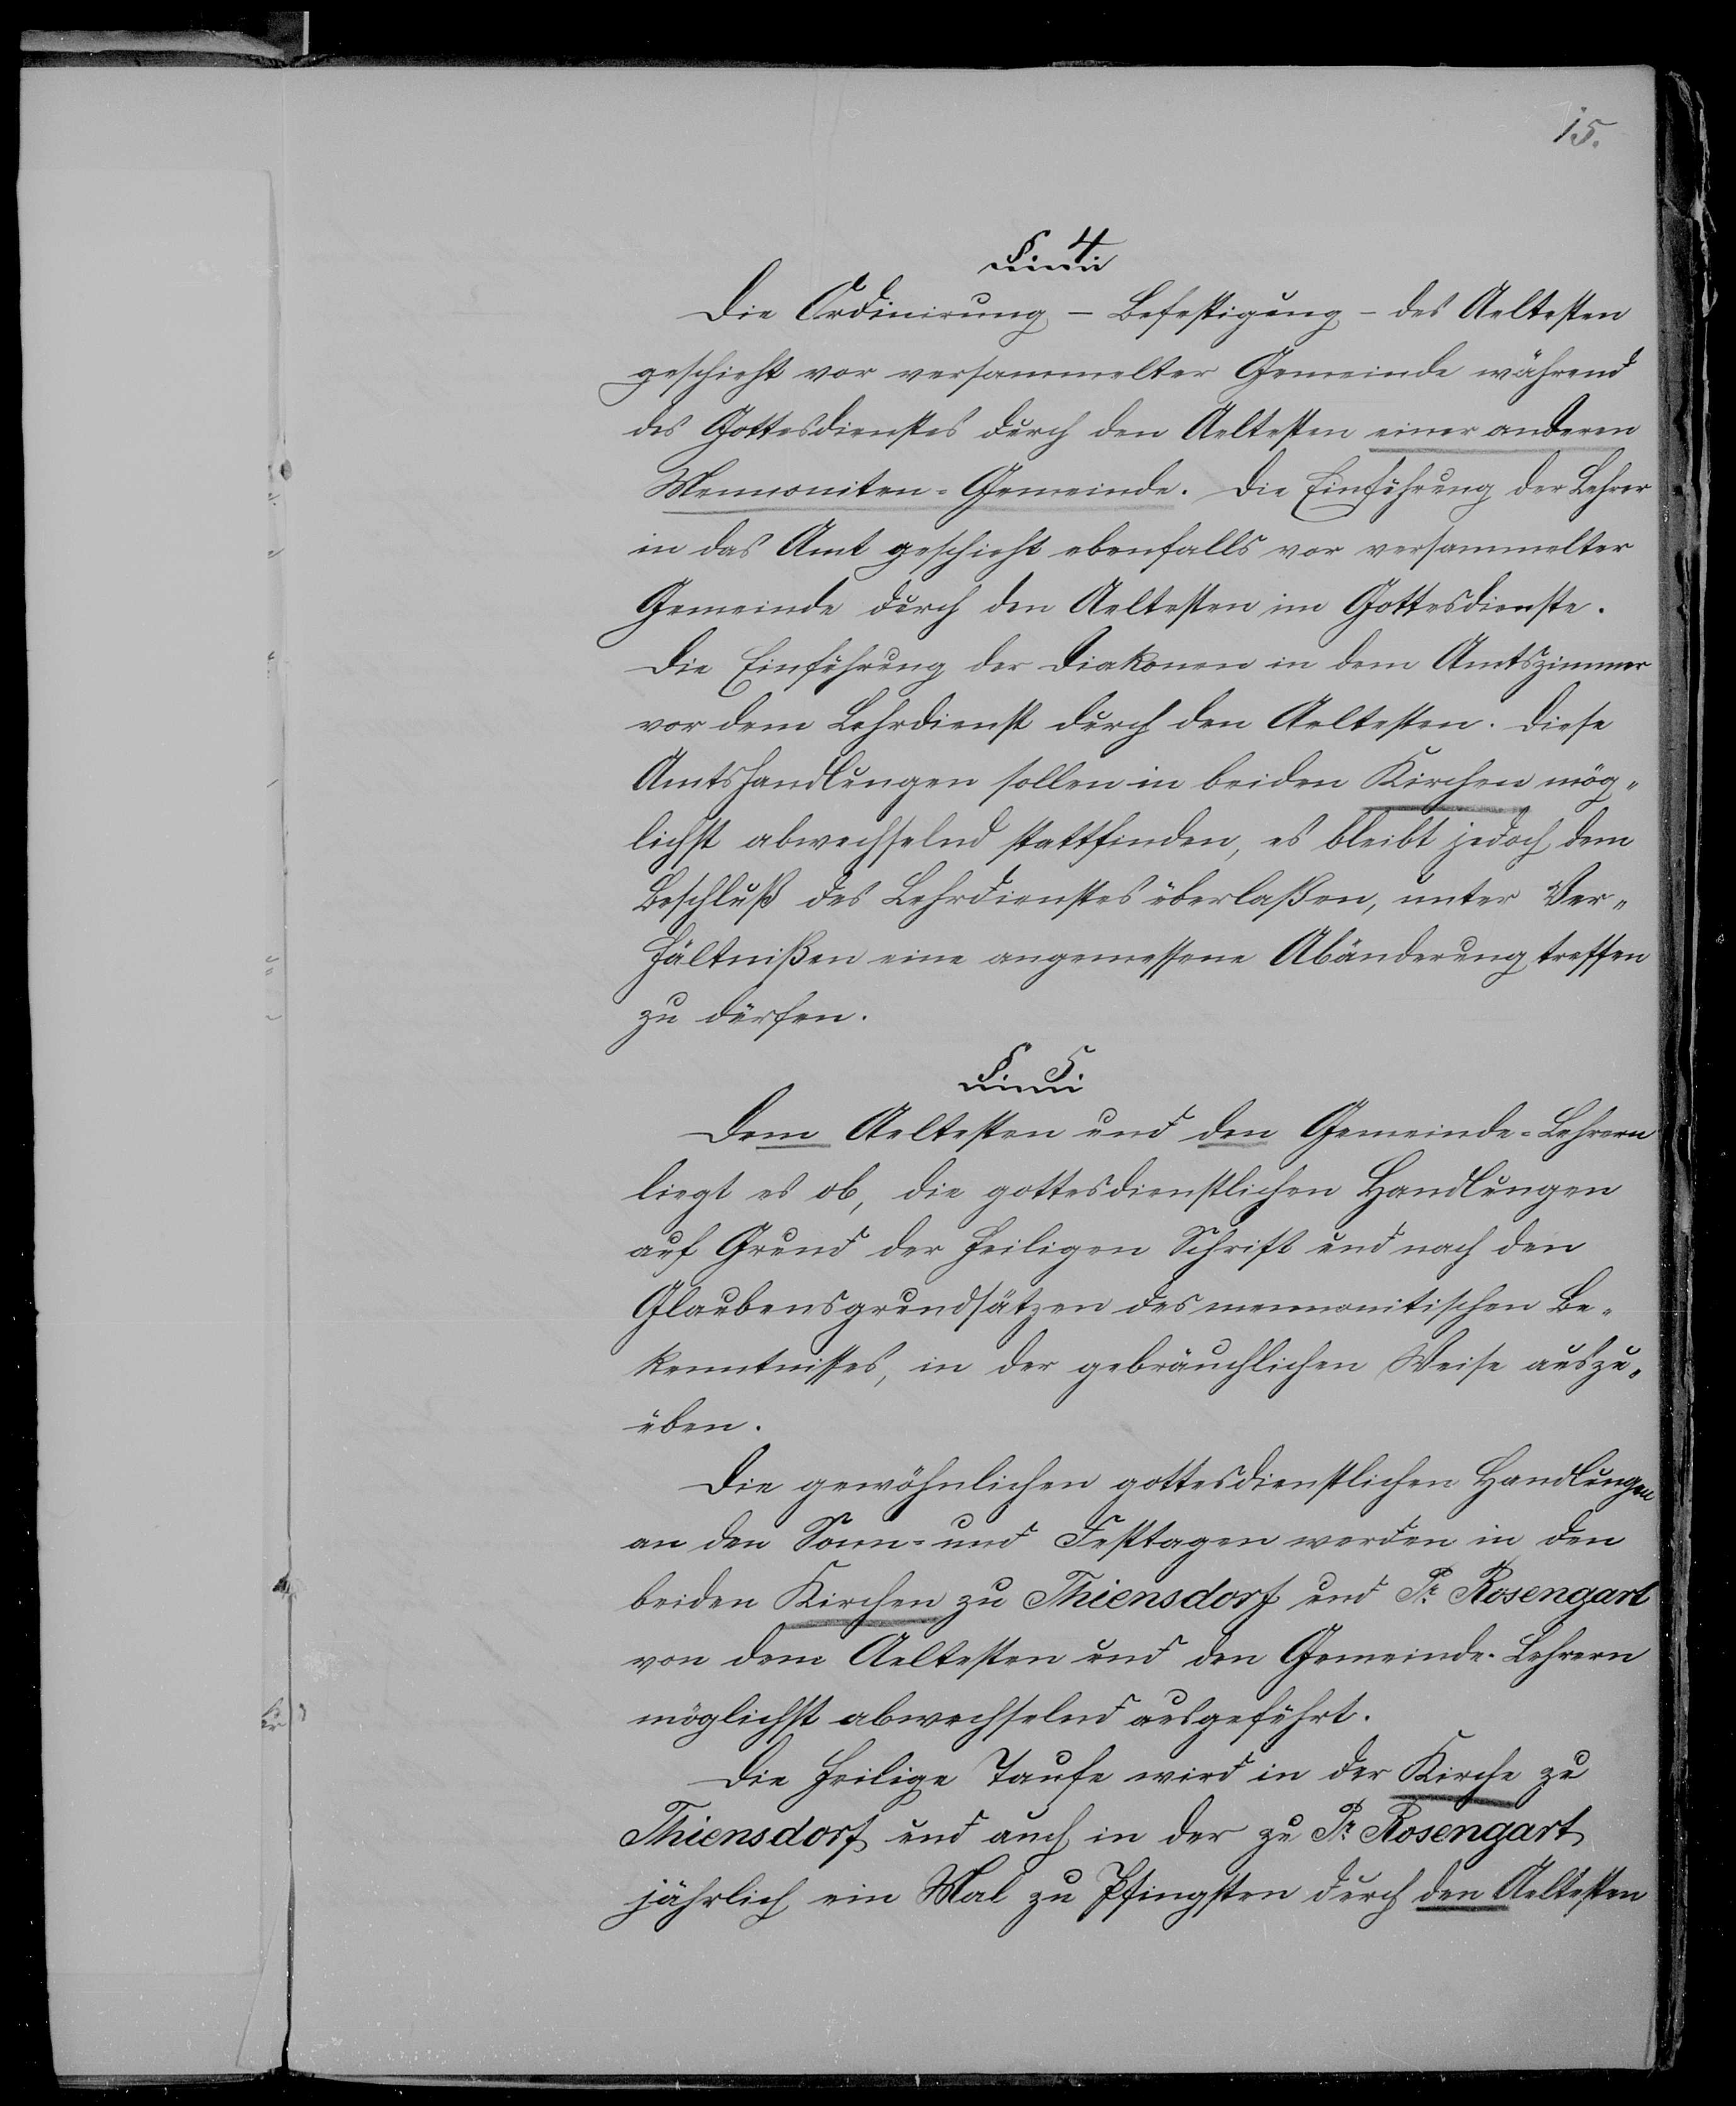 15.
§. 4
Die Ordinirung - Befestigung - des Aeltesten
geschieht vor versammelter Gemeinde während
des Gottesdienstes durch den Aeltesten einer anderen
Mennoniten-Gemeinde. Die Einführung der Lehrer
in das Amt geschieht ebenfalls vor versammelter
Gemeinde durch den Aeltesten im Gottesdienste.
Die Einführung der Diakonen in dem Amtszimmer
vor dem Lehrdienst durch den Aeltesten. Diese
Amtshandlungen sollen in beiden Kirchen mög-
lichst abwechselnd stattfinden, es bleibt jedoch dem
Beschluß des Lehrdienstes überlaßen, unter Ver-
hältnißen eine angemessene Abänderung treffen
zu dürfen.
§. 5.
Dem Aeltesten und den Gemeinde-Lehrern
liegt es ob, die gottesdienstlichen Handlungen
auf Grund der heiligen Schrift und nach den
Glaubensgrundsätzen des mennonitischen Be-
kenntnisses, in der gebräuchlichen Weise auszu-
üben.
Die gewöhnlichen gottesdienstlichen Handlungen
an den Sonn- und Festtagen werden in den
beiden Kirchen zu Thiensdorf und Pr. Rosengart
von dem Aeltesten und den Gemeinde-Lehrern
möglichst abwechselnd ausgeführt.
Die heilige Taufe wird in der Kirche zu
Thiensdorf und auch in der zu Pr. Rosengart
jährlich ein Mal zu Pfingsten durch den Aeltesten